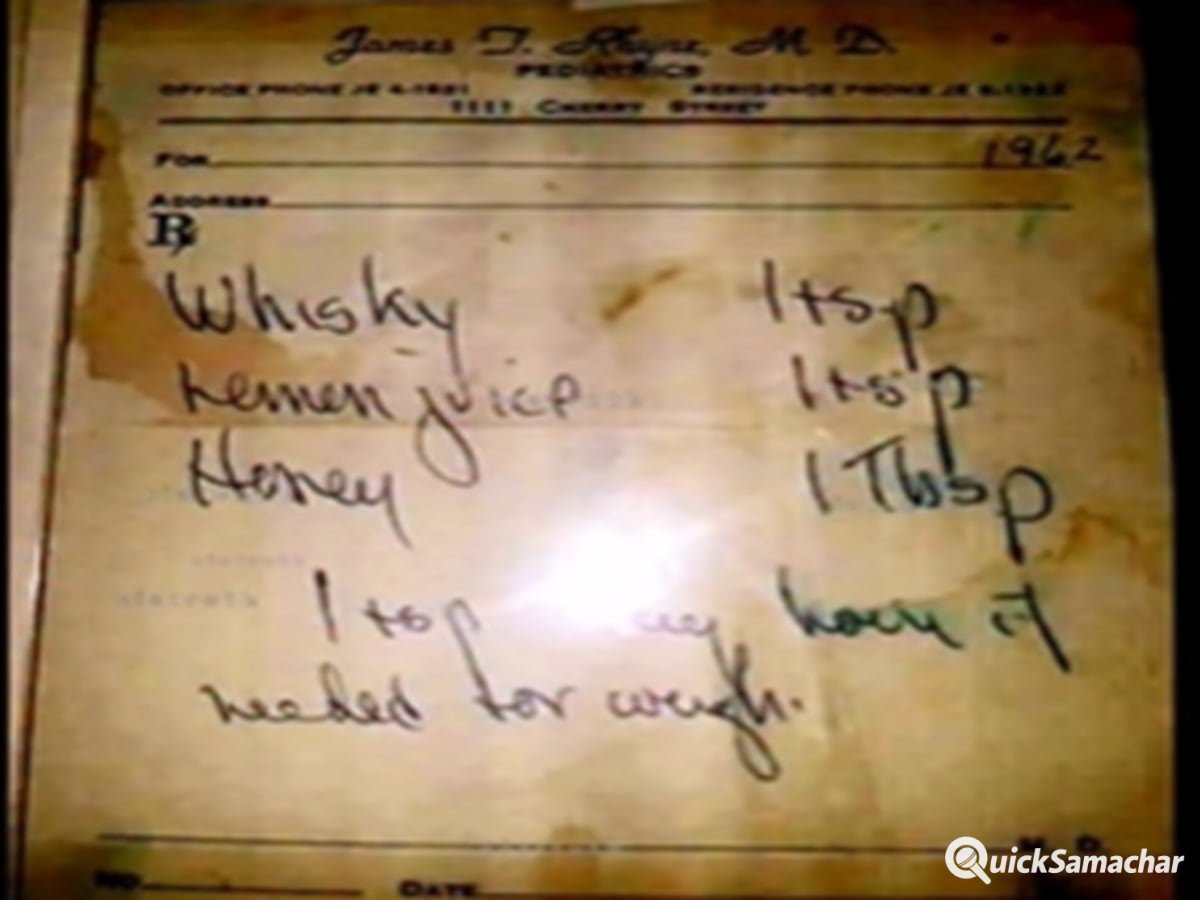 James T. Rhyne, M. D.
PEDIATRICS
OFFICE PHONE JE RESIDENCE PHONE JE
1111 CHERRY STREET
FOR 1962
ADDRESS
Rx
Whisky 1 tsp
Lemon juice 1 tsp
Honey 1 Tbsp
1 tsp hour if
needed for cough.
M. D.
NO. DATE
QuickSamachar